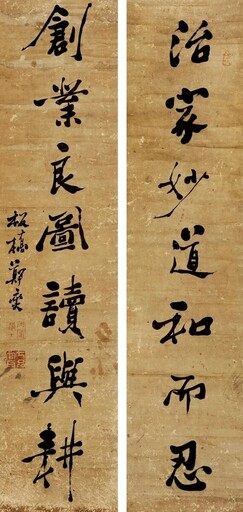 治家妙道和而忍
創業良圖讀與耕
板橋鄭燮